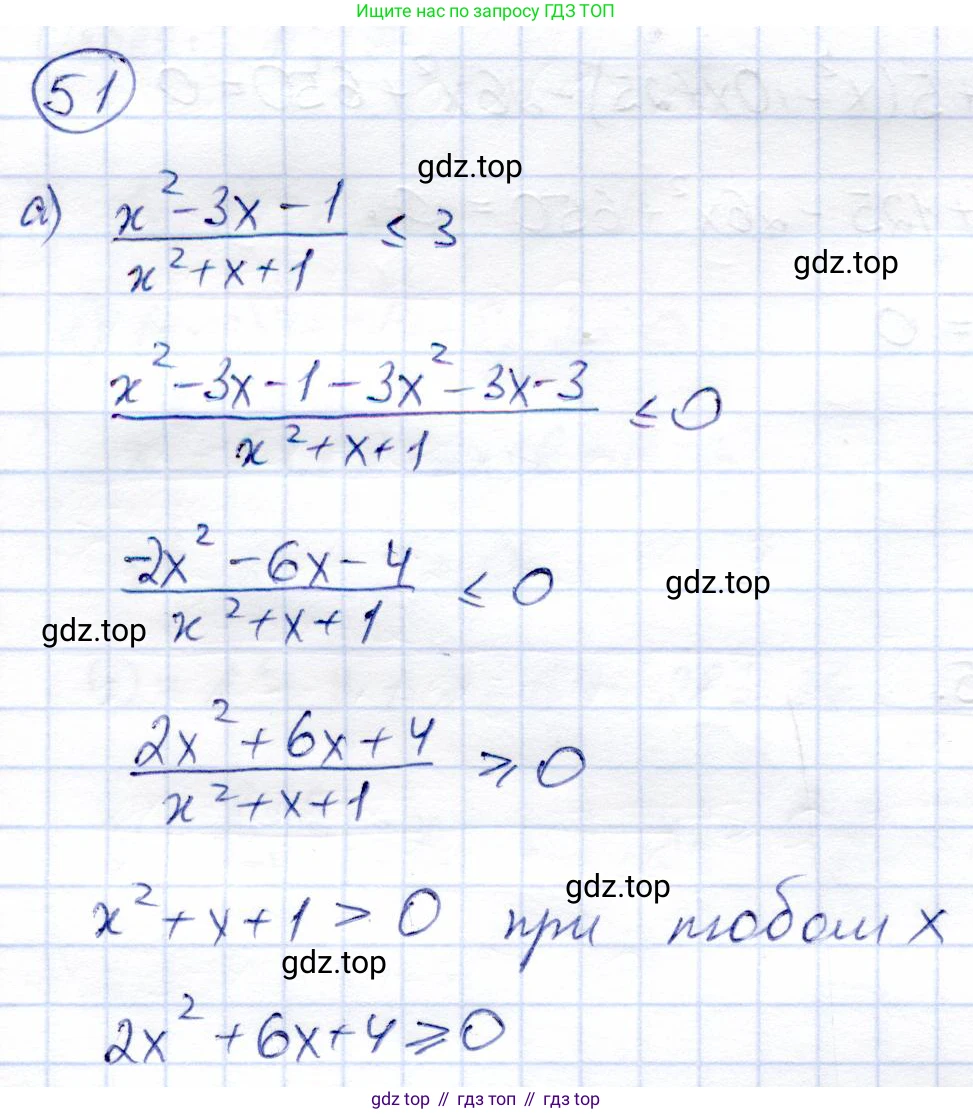 Ищите нас по запросу ГДЗ ТОП
51
gdz.top
а) (x² - 3x - 1)/(x² + x + 1) ≤ 3
gdz.top
(x² - 3x - 1 - 3x² - 3x - 3)/(x² + x + 1) ≤ 0
(-2x² - 6x - 4)/(x² + x + 1) ≤ 0
gdz.top
gdz.top
(2x² + 6x + 4)/(x² + x + 1) ⩾ 0
gdz.top
x² + x + 1 > 0 при любом x
gdz.top
2x² + 6x + 4 ⩾ 0
gdz.top // гдз топ // гдз top